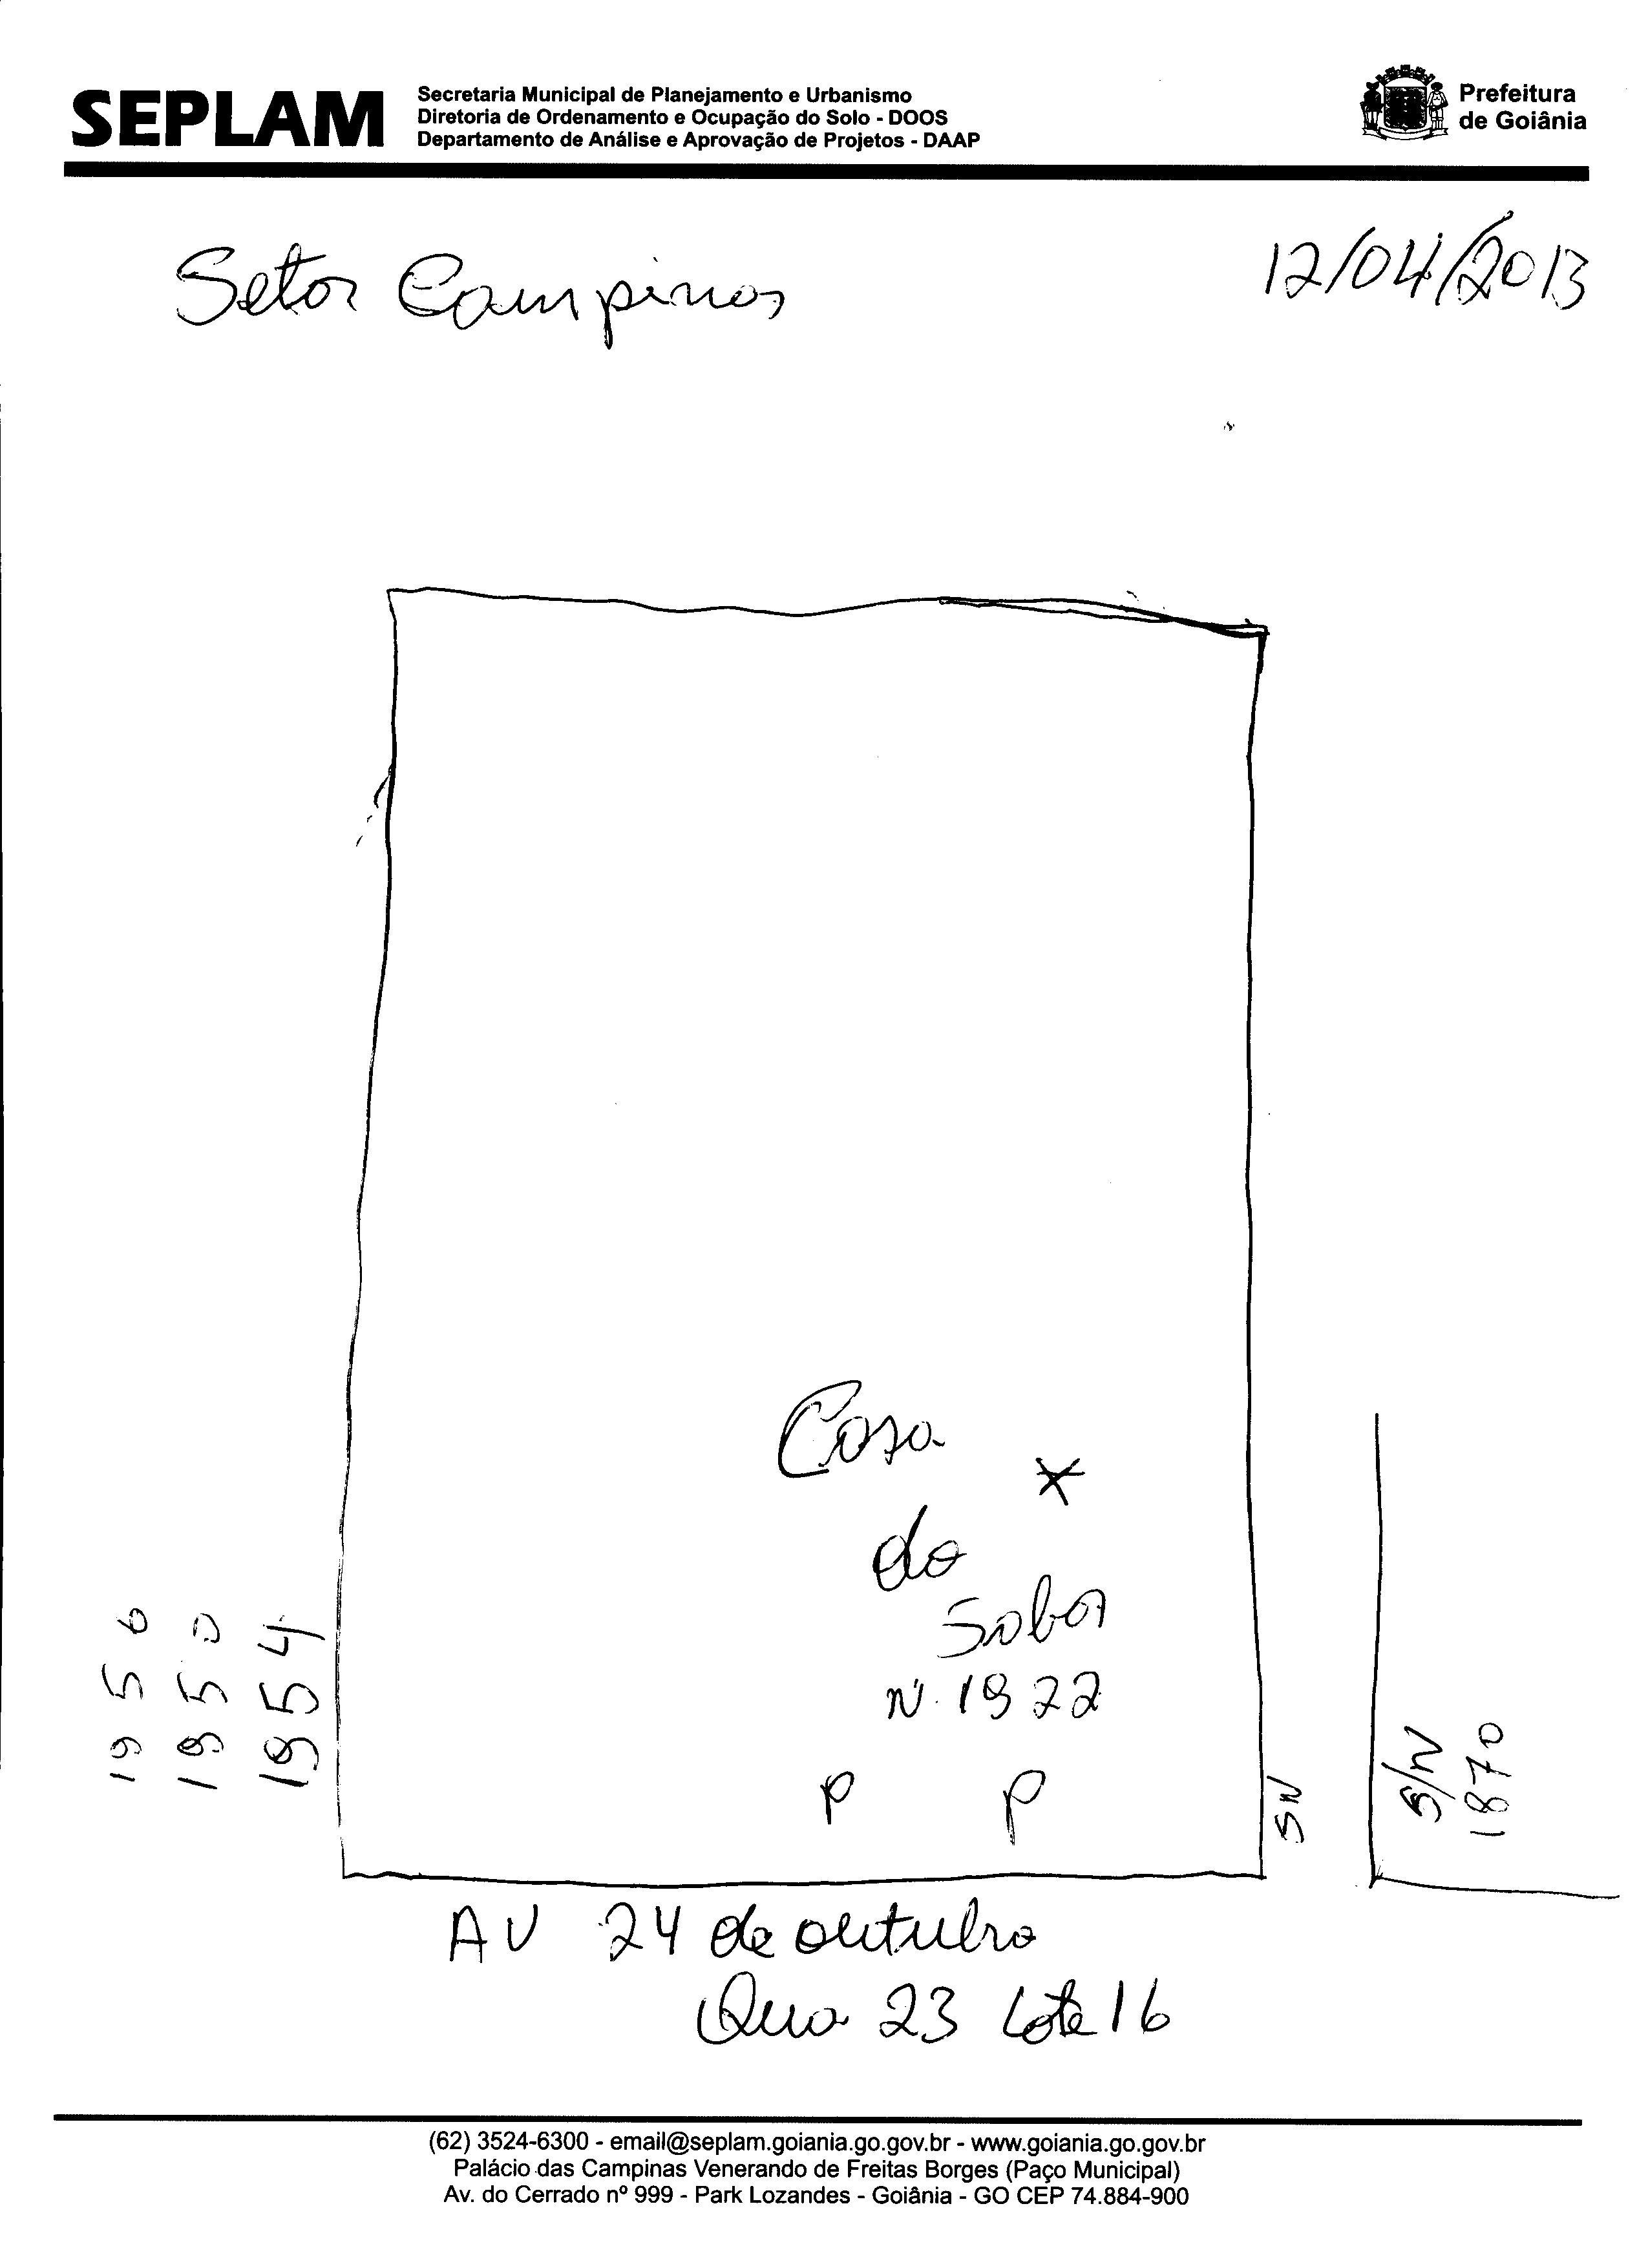 SEPLAM
Secretaria Municipal de Planejamento e Urbanismo
Diretoria de Ordenamento e Ocupação do Solo - DOOS
Departamento de Análise e Aprovação de Projetos - DAAP
Prefeitura
de Goiânia
Setor Campinas
12/04/2013
Casa
do
Sabor
Nº 1922
P P
1956
1950
1954
SN
S/N
1870
AV 24 de outubro
Qua 23 Lote 16
(62) 3524-6300 - email@seplam.goiania.go.gov.br - www.goiania.go.gov.br
Palácio das Campinas Venerando de Freitas Borges (Paço Municipal)
Av. do Cerrado nº 999 - Park Lozandes - Goiânia - GO CEP 74.884-900